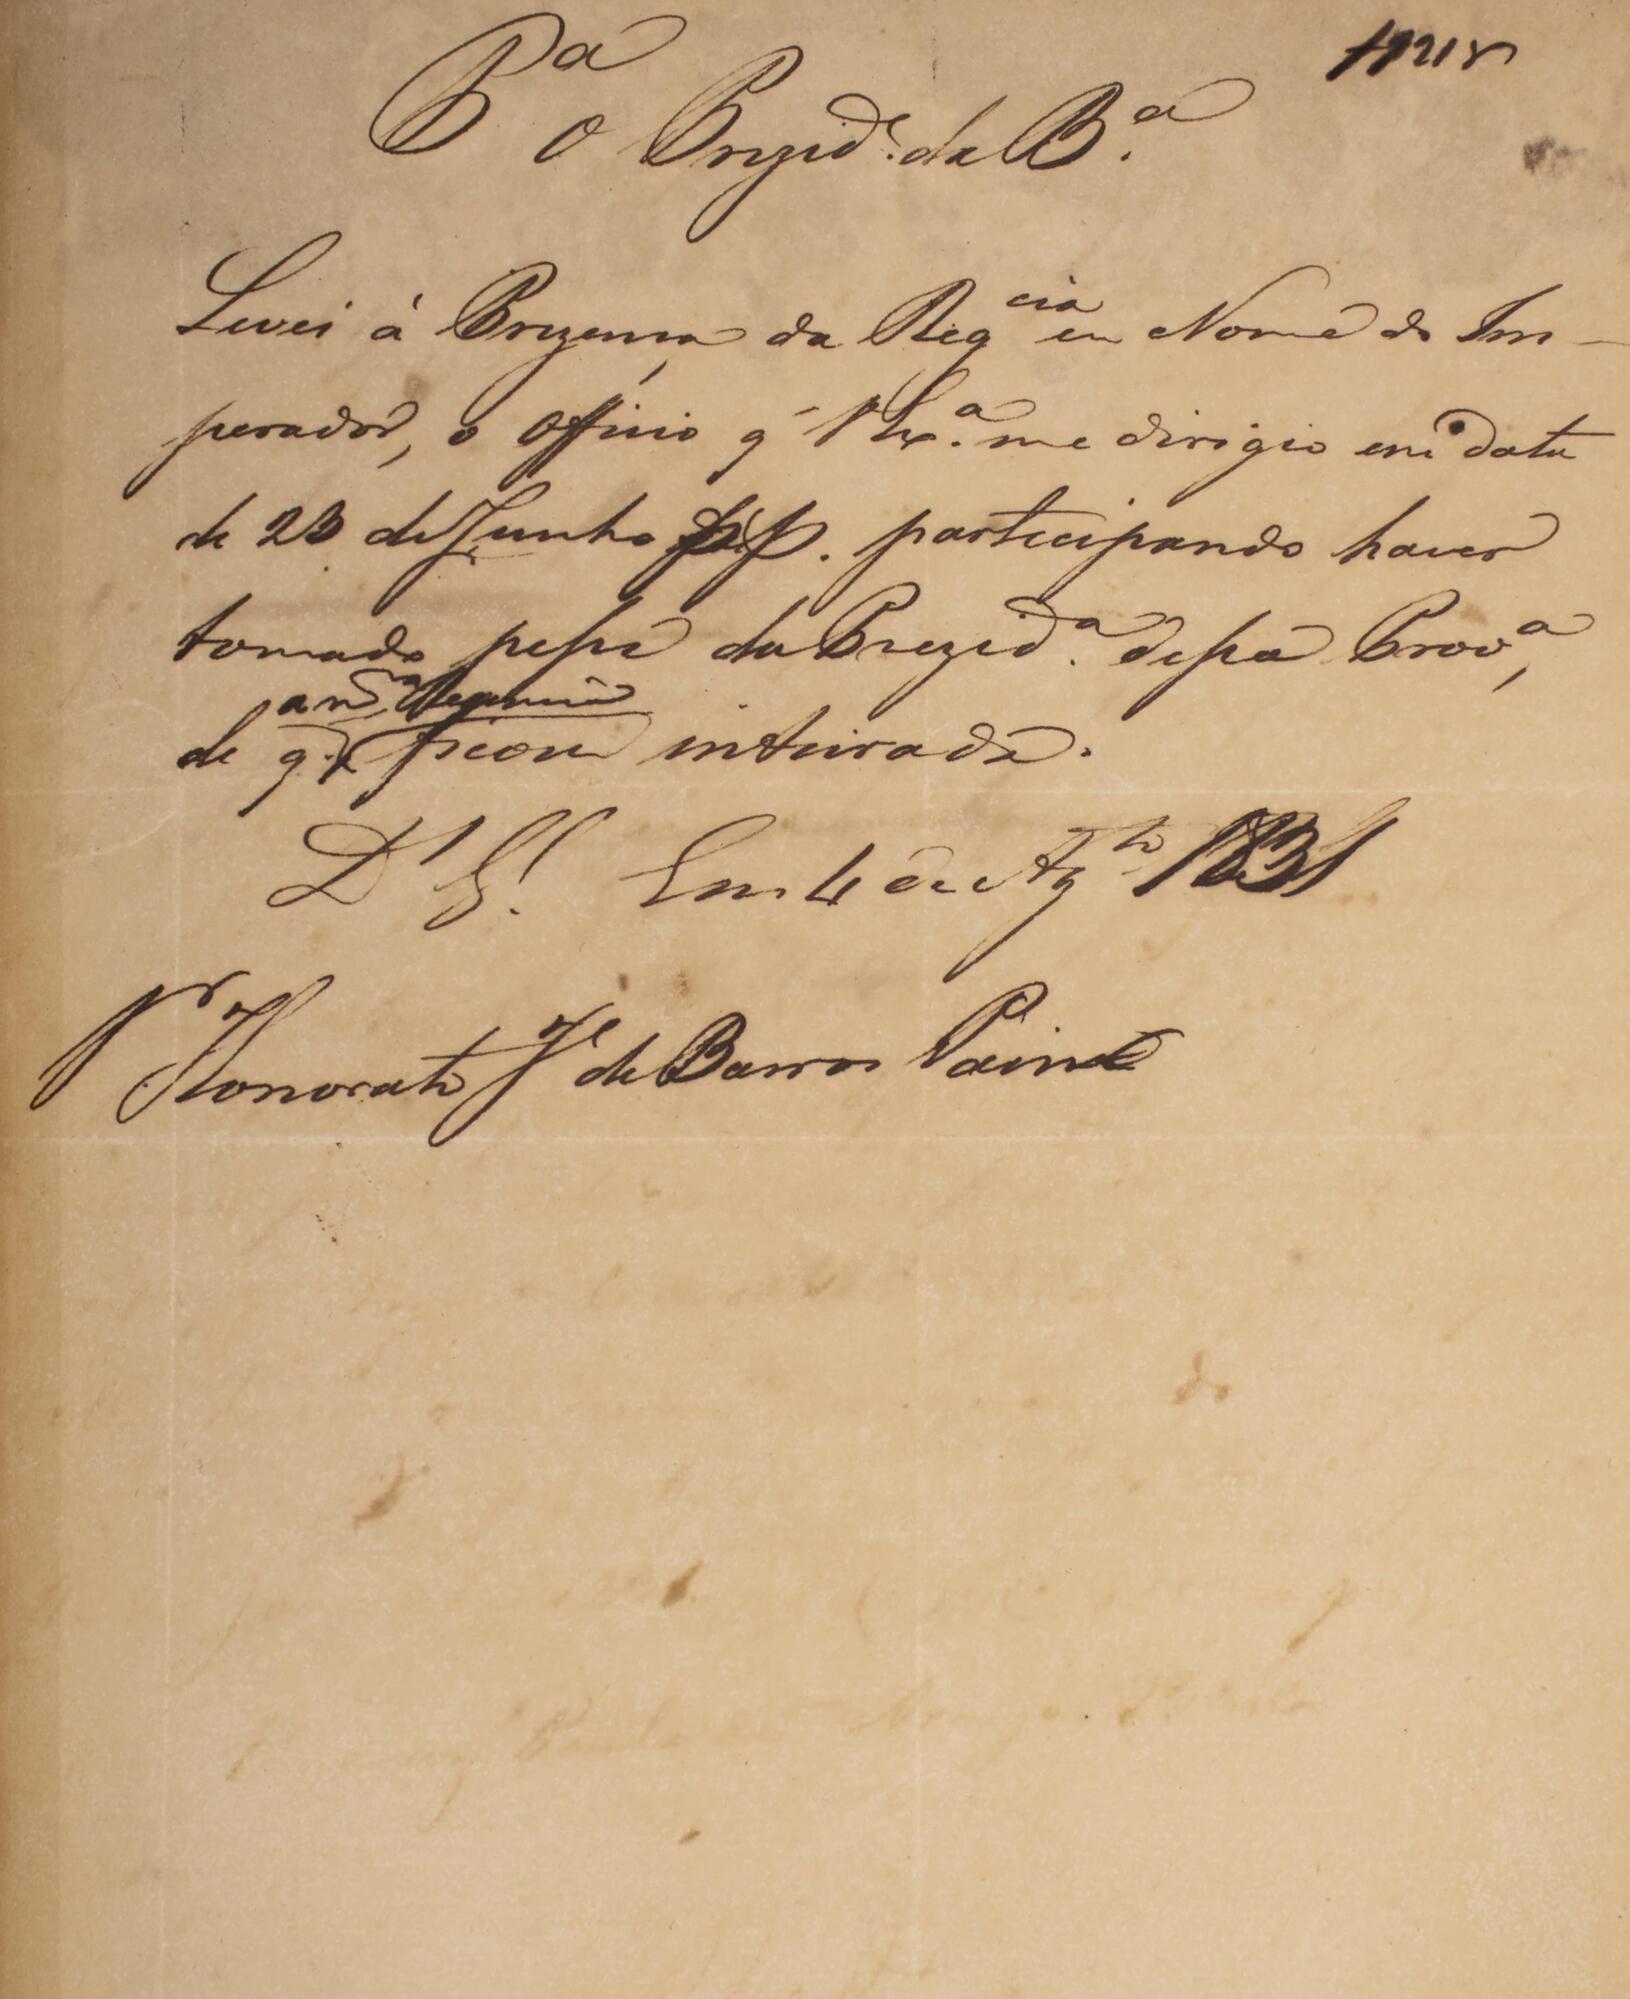 P.ª o Prezid.e da B.ª
Levei á Prezença da Reg.cia em Nome do Im-
perador, o Officio q̃ V Ex.ª me dirigio em data
de 23 de Junho p. p. participando haver
tomado posse da Prezid.ª dessa Prov.ª,
a m.ma Regencia
de q. ficou inteirada.
D.s G.e Em 4 de Ag.to 1831
S.r Honorato J.e de Barros Paim